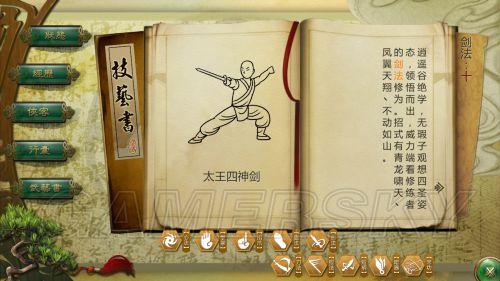 狀態
經歷
俠客
行囊
武藝書
技藝書
太王四神剑
逍遥谷绝学，无瑕子观想四圣姿
态，领悟而出，威力端看修练者
的剑法修为。招式有青龙啸天、
凤翼天翔、不动如山。
剑法：十
GAMERSKY